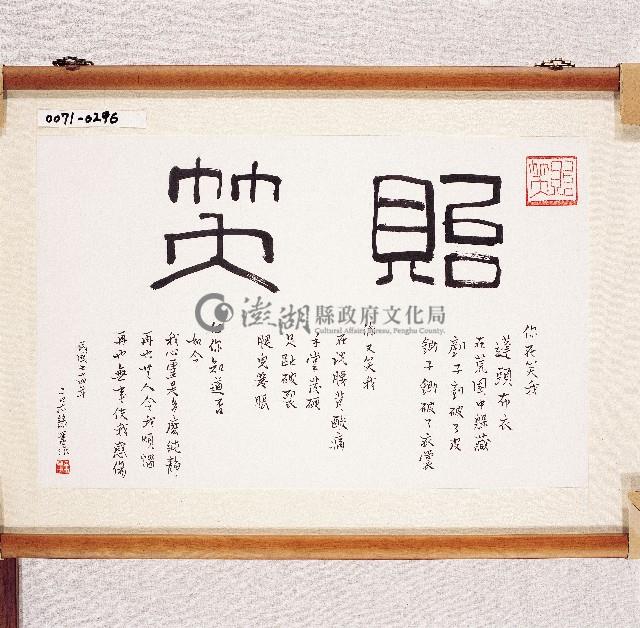 0071-0296
貽笑
貽笑
你在笑我
蓬頭布衣
在荒園中躲藏
破了皮
鋤子鋤破了衣裳
你又笑我
在說腰背酸痛
手掌
足趾破裂
你知道否
如今
我心靈是多麼純靜
再也無人令我煩惱
再也無事使我感傷
民國七十四年
澎湖縣政府文化局
Cultural Affairs Bureau, Penghu County.